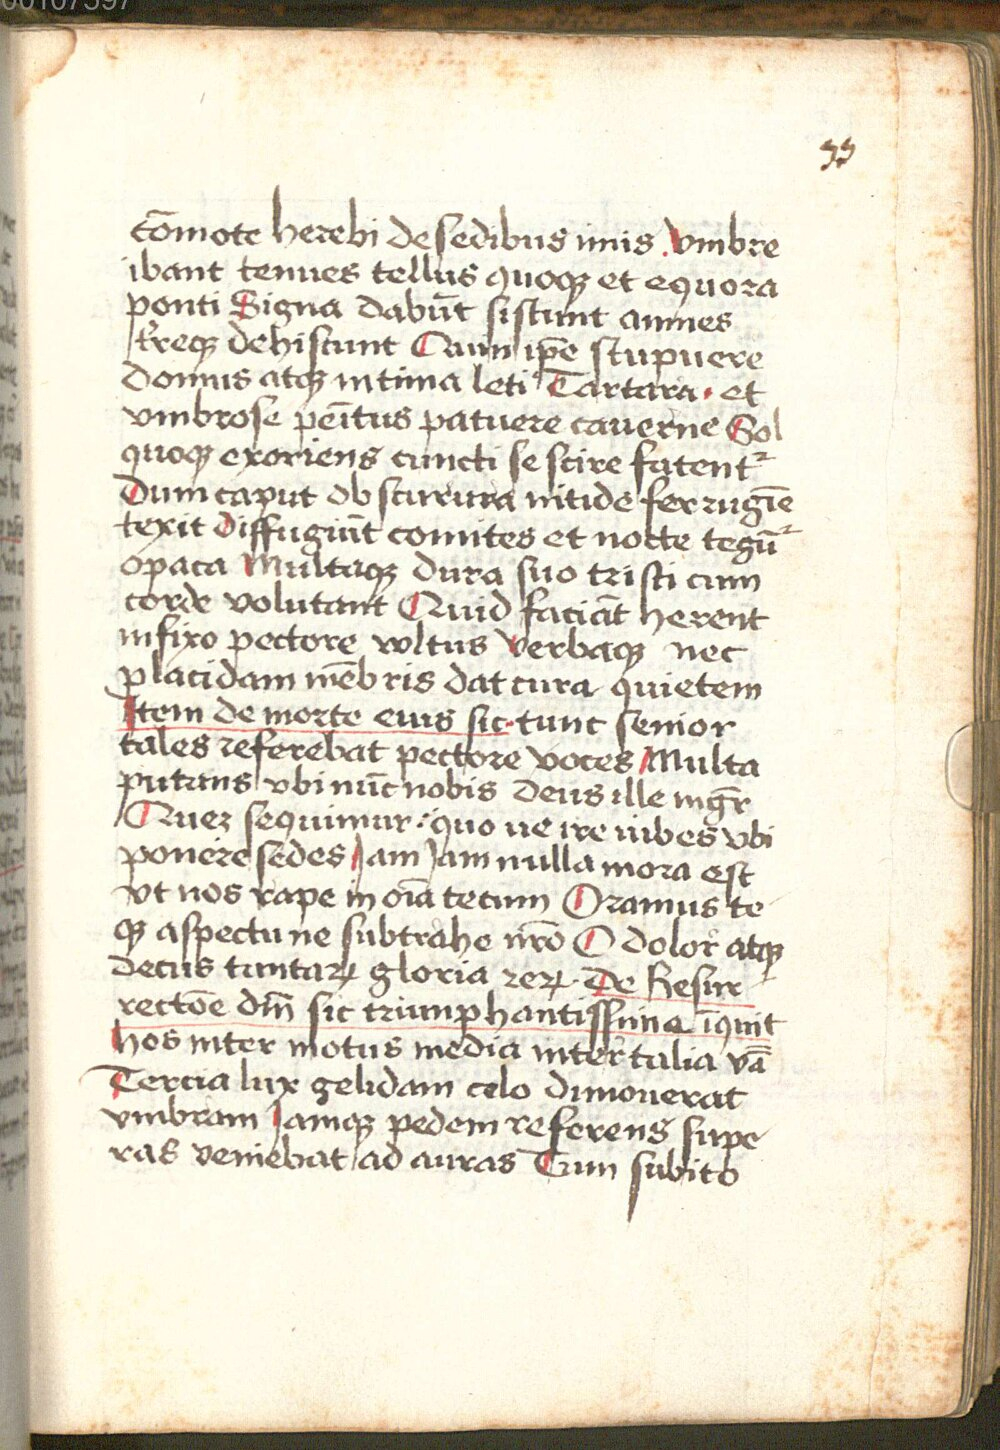 00107397
33
cōmote herebi de sedibus imis Vmbre
ibant tenues tellus quoqꝫ et equora
ponti Signa dabūt sistunt amnes
tr̄reqꝫ dehiscunt Quin ip̄e stupuere
domus atqꝫ intima leti Tartara · et
vmbrose pēitus patuere cauerne Sol
quoqꝫ exoriens cuncti se scire fatentᷣ
Dum caput obscurum nitide ferrugīe
texit Diffugiūt comites et nocte tegūᷣ
opaca Multaqꝫ dura suo tristi cum
corde volutant Quid faciāt herent
infixo pectore vvltus Verbaqꝫ nec
placidam mēbris dat cura quietem
Item de morte eius sic · tunc senior
tales referebat pectore voces Multa
putans vbi nūc nobis Deus ille mgr̄
Quez sequimur : quo ue ire iubes vbi
ponere sedes Jam Jam nulla mora est
Vt nos rape in oīa tecum Oramus te
qꝫ aspectu ne subtrahe nr̄o O dolor atqꝫ
decus tantaꝝ gloria reꝝ · De Resur
rectōe dn̄i sic triumphantissime īquit
Hos inter motus media inter talia vā
Tercia lux gelidam celo dimouerat
vmbram Jamqꝫ pedem referens supe
ras veniebat ad auras Cum subito